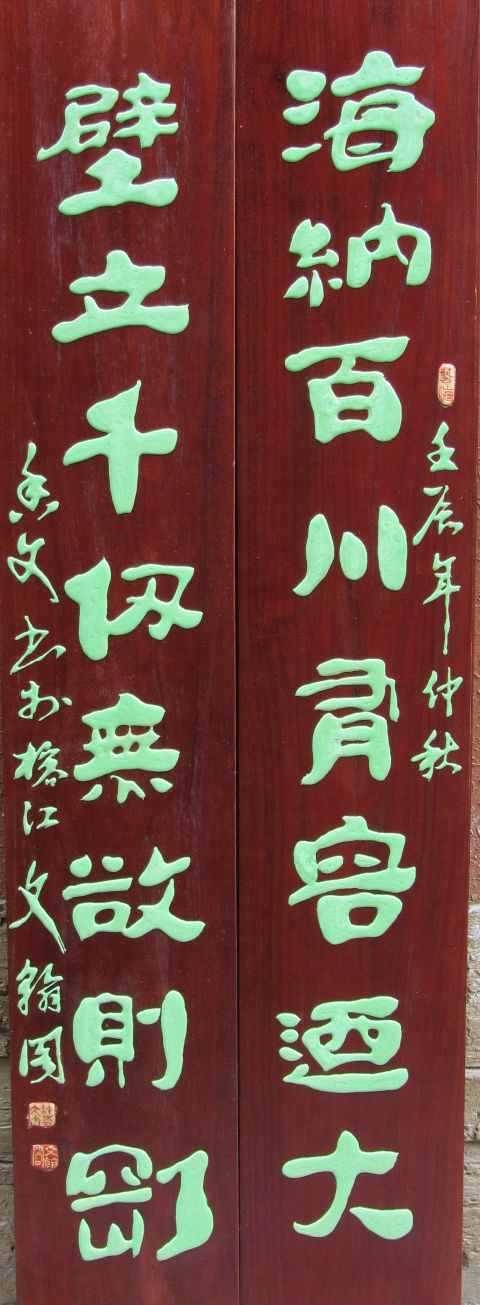 壬辰年仲秋
海納百川有容迺大
壁立千仞無欲則剛
文書於榕江文翰園